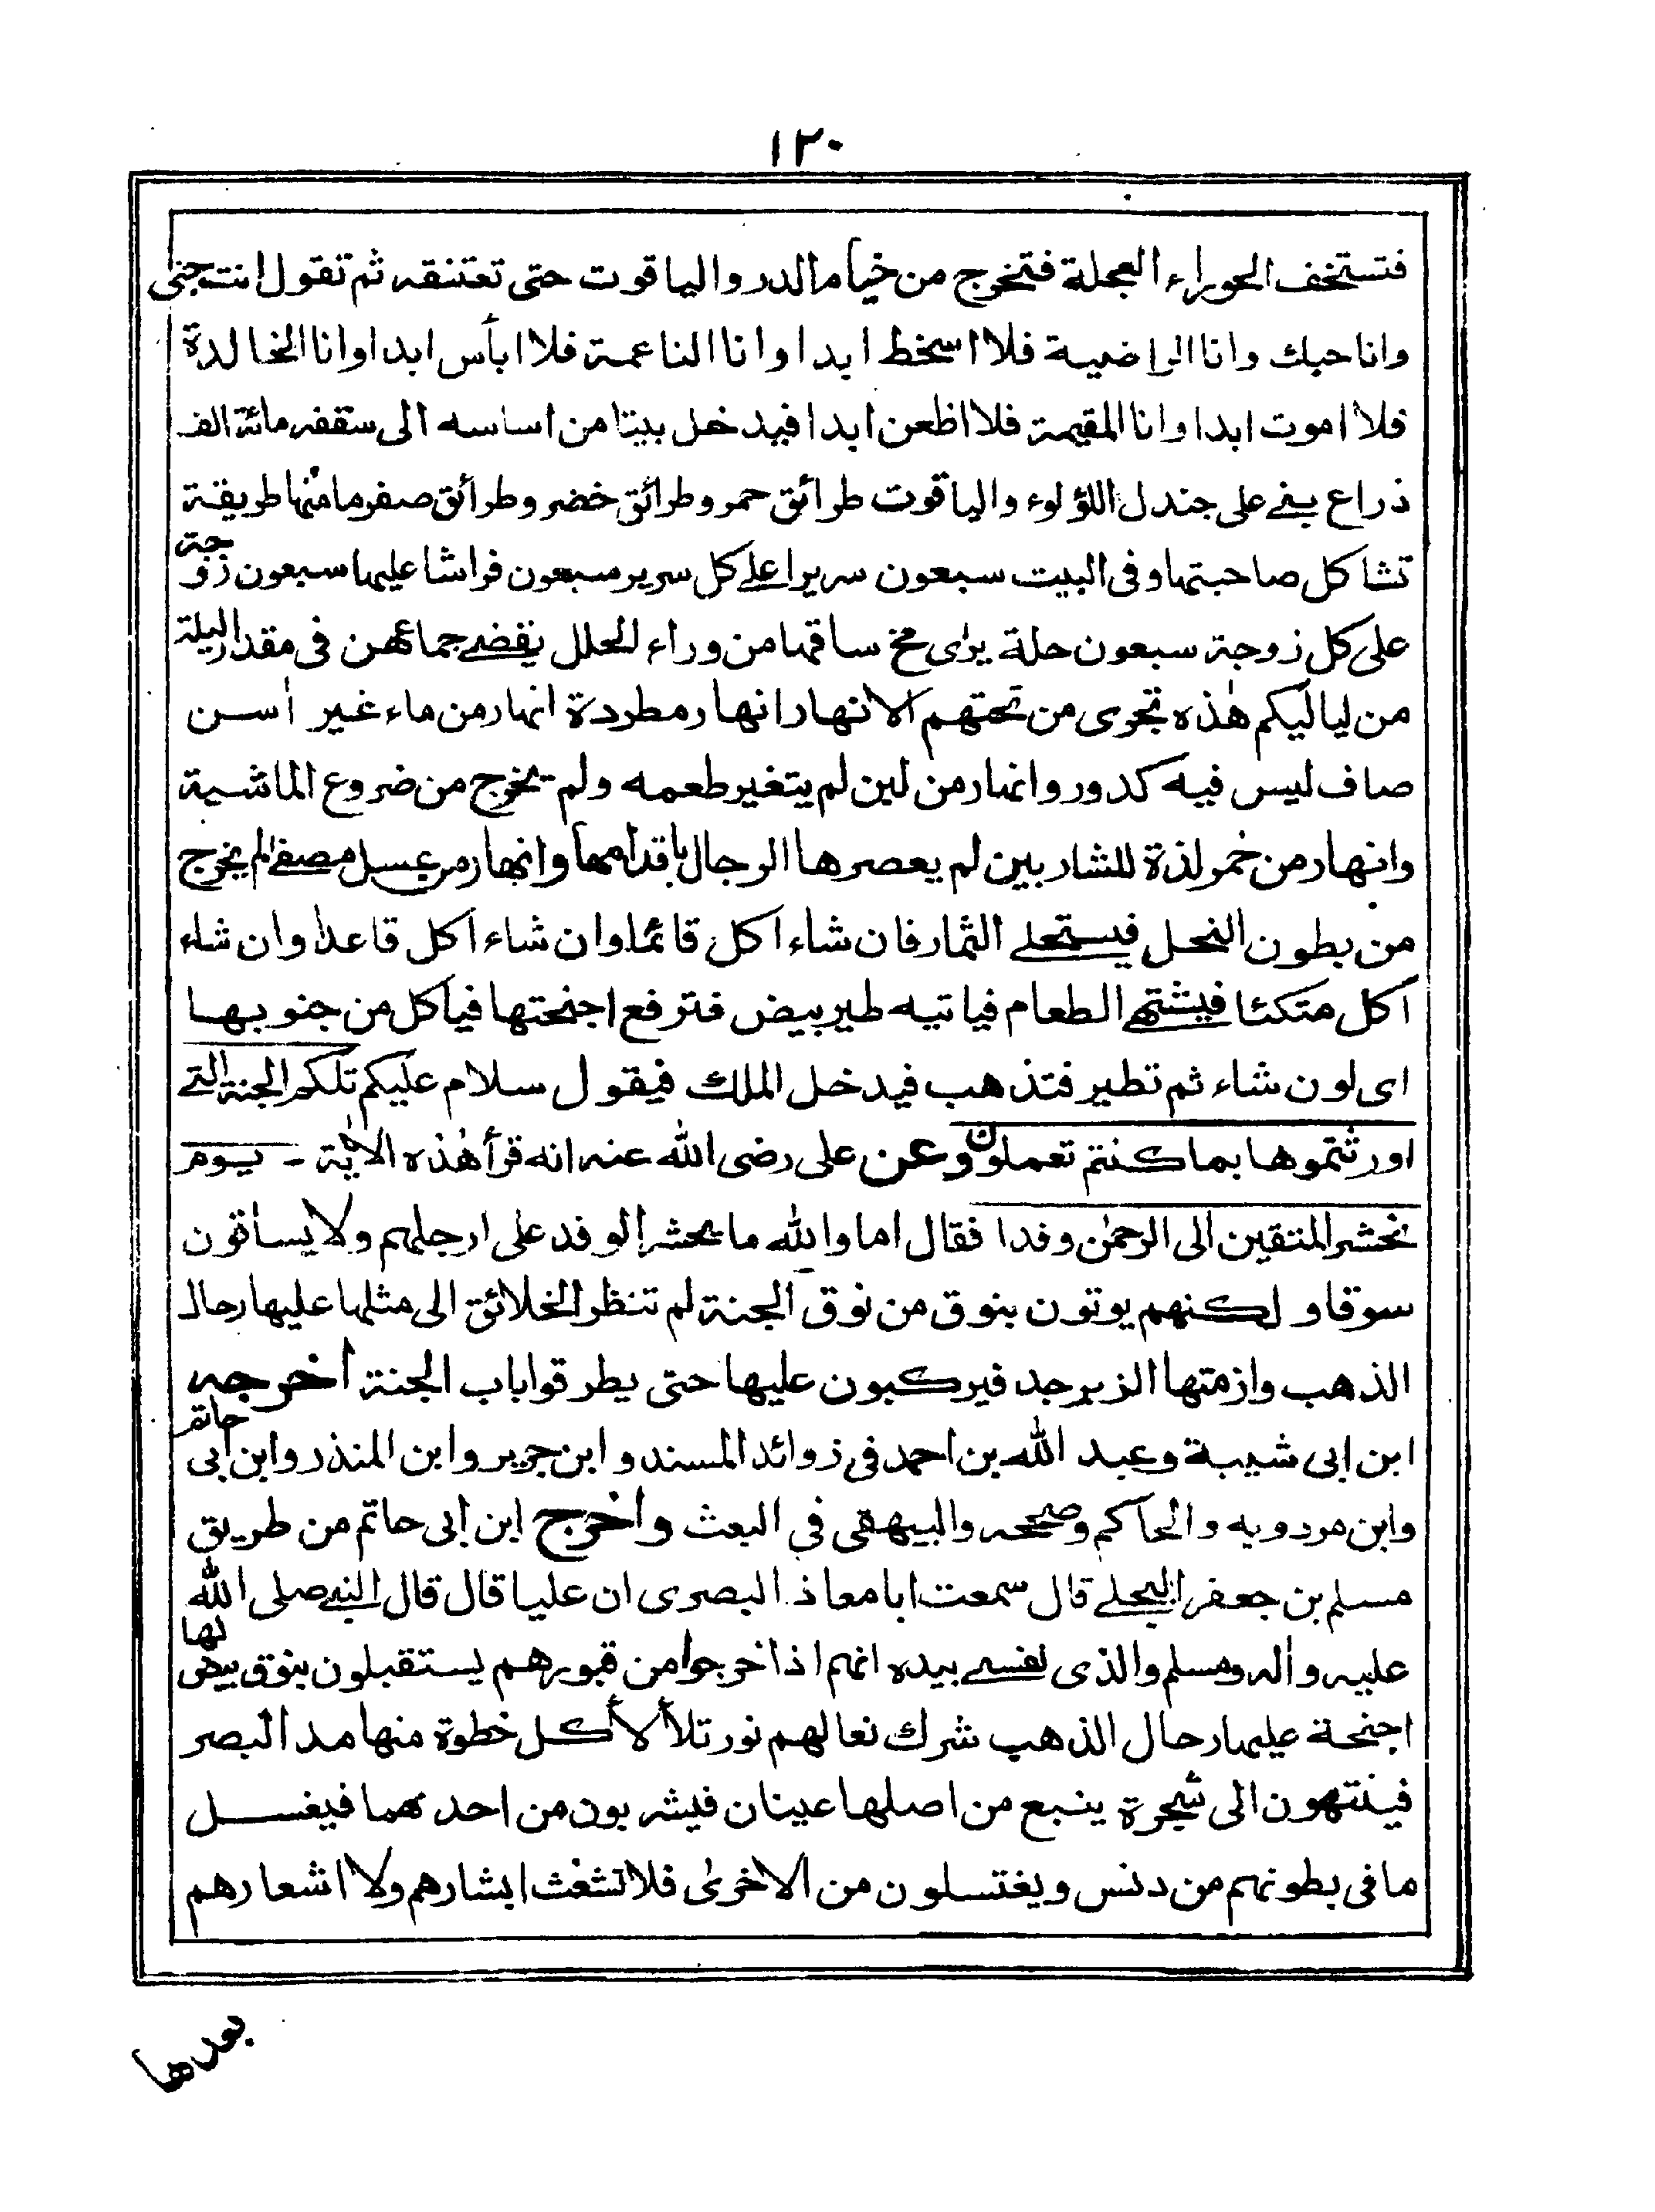 ١٢٠
فتستخف الحوراء العجلة فتخرج من خيام الدر والياقوت حتى تعتنقه ثم تقول انت حبى
وانا حبك وانا الراضية فلا اسخط ابدا وانا الناعمة فلا ابأس ابدا وانا الخالدة
فلا اموت ابدا وانا المقيمة فلا اظعن ابدا فيدخل بيتا من اساسه الى سقفه مائة الف
ذراع بنى على جندل اللؤلوء والياقوت طرائق حمر وطرائق خضر وطرائق صفر ما منها طريقة
تشاكل صاحبتها وفى البيت سبعون سريرا على كل سرير سبعون فراشا عليها سبعون زوجة
على كل زوجة سبعون حلة يرى مخ ساقها من وراء الحلل يقضى جماعهن فى مقدار ليلة
من لياليكم هذه تجرى من تحتهم الانهار انهار مطردة انهار من ماء غير اٰسن
صاف ليس فيه كدور وانهار من لبن لم يتغير طعمه ولم يخرج من ضروع الماشية
وانهار من خمر لذة للشاربين لم يعصرها الرجال باقدامها وانهار من عسل مصفى لم يخرج
من بطون النحل فيستحلى الثمار فان شاء اكل قائما وان شاء اكل قاعدا وان شاء
اكل متكئا فيشتهى الطعام فياتيه طير بيض فترفع اجنحتها فياكل من جنوبها
اى لون شاء ثم تطير فتذهب فيدخل الملك فيقول سلام عليكم تلكم الجنة التى
اورثتموها بما كنتم تعملون وعن على رضى الله عنه انه قرأ هٰذه الاٰية - يوم
نحشر المتقين الى الرحمٰن وفدا فقال اما والله ما يحشر الوفد على ارجلهم ولا يساقون
سوقا ولكنهم يوتون بنوق من نوق الجنة لم تنظر الخلائق الى مثلها عليها رحال
الذهب وازمتها الزبرجد فيركبون عليها حتى يطرقوا باب الجنة اخرجه
ابن ابى شيبة وعبد الله بن احمد فى زوائد المسند وابن جرير وابن المنذر وابن ابى حاتم
وابن مردويه والحاكم وصححه والبيهقى فى البعث واخرج ابن ابى حاتم من طريق
مسلم بن جعفر البجلى قال سمعت ابا معاذ البصرى ان عليا قال قال النبى صلى الله
عليه واٰله وسلم والذى نفسى بيده انهم اذا خرجوا من قبورهم يستقبلون بنوق بيض لها
اجنحة عليها رحال الذهب شرك نعالهم نور تلألأ كل خطوة منها مد البصر
فينتهون الى شجرة ينبع من اصلها عينان فيشربون من احدهما فيغسل
ما فى بطونهم من دنس ويغتسلون من الاخرىٰ فلا تشعث ابشارهم ولا اشعارهم
بعدها